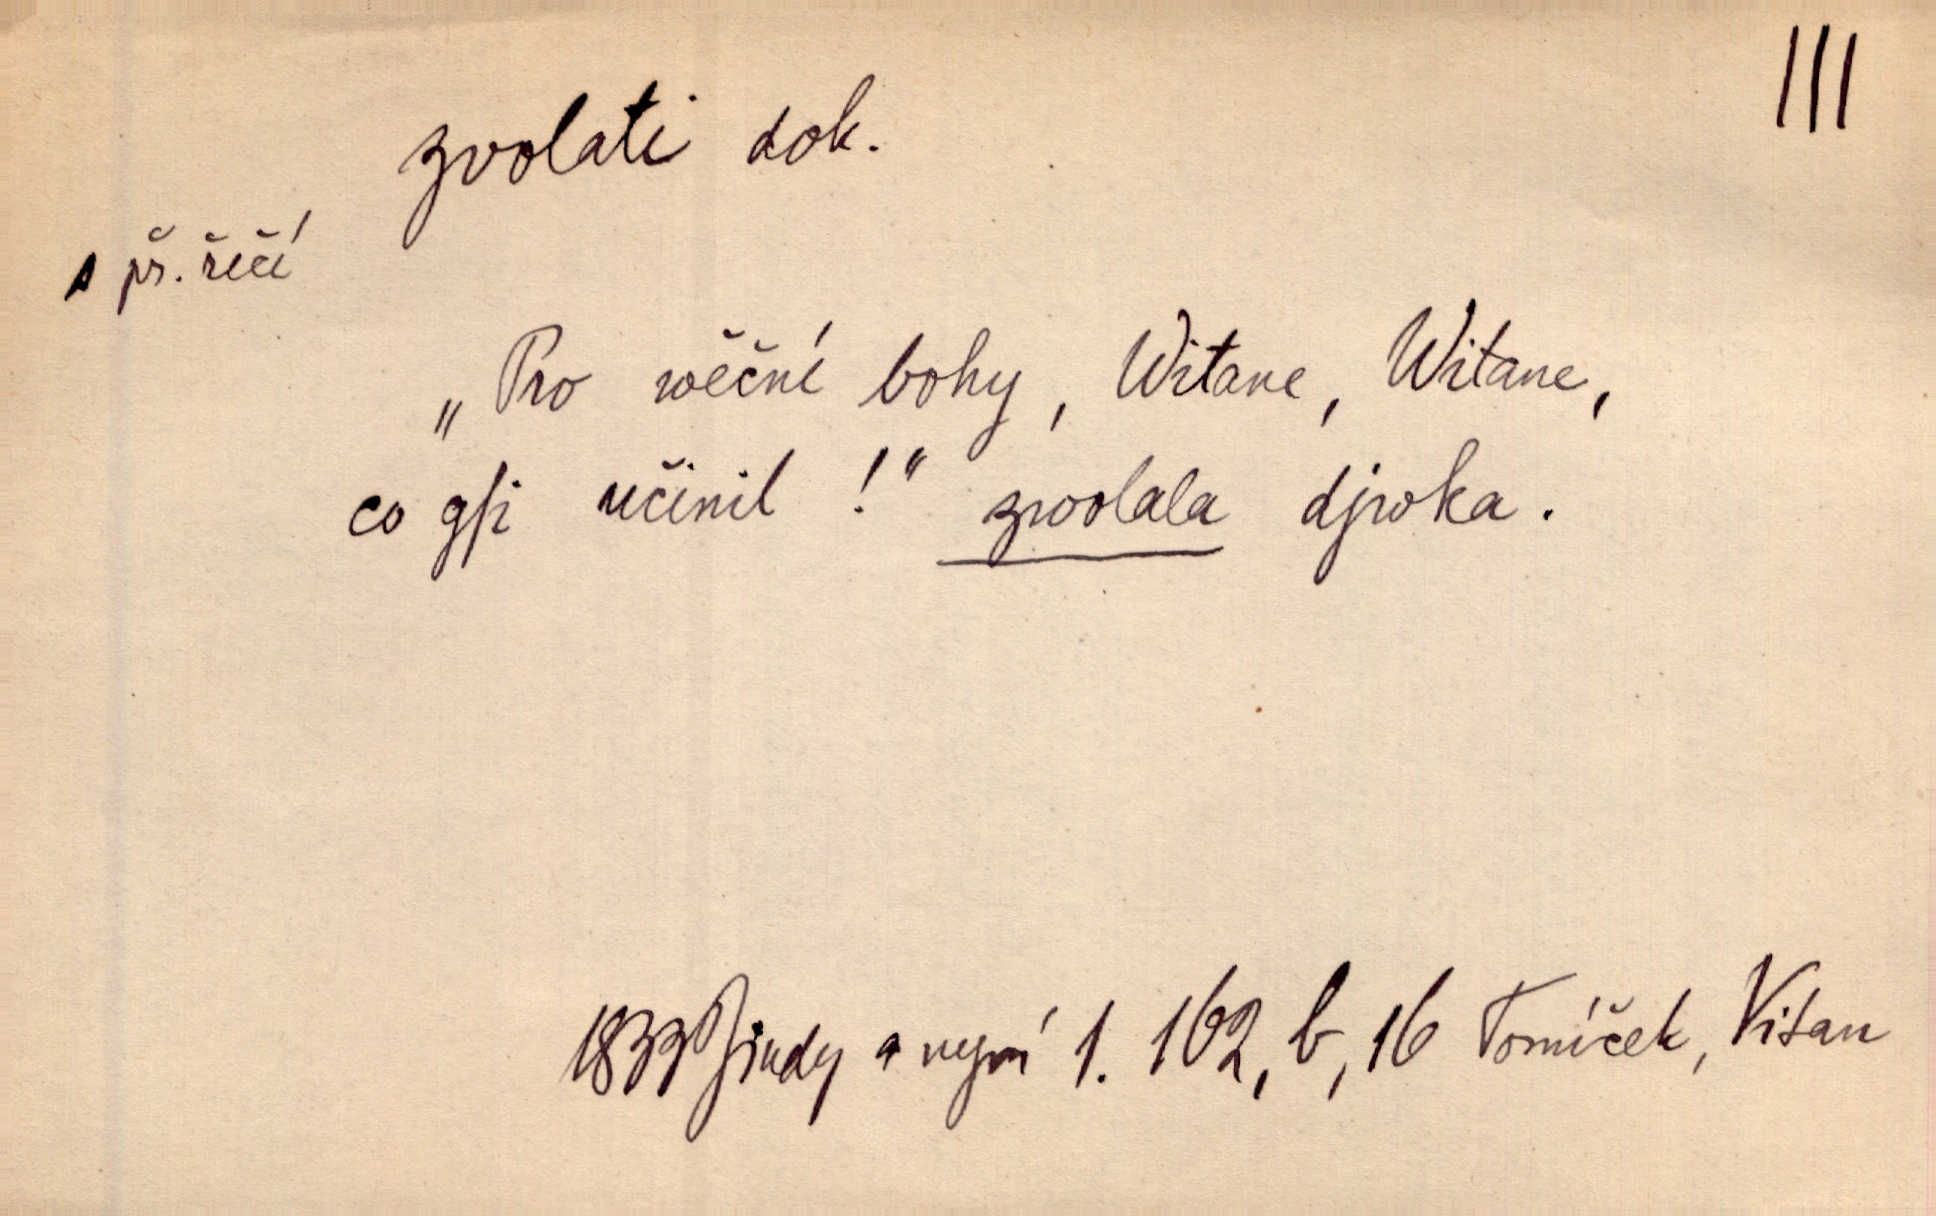 III
zvolati dok.
s př. řečí
„Pro wěčné bohy, Witane, Witane,
co gſi učinil!“ zwolala djwka.
1833 Jindy a nyní 1. 162, b, 16 Tomíček, Vitan